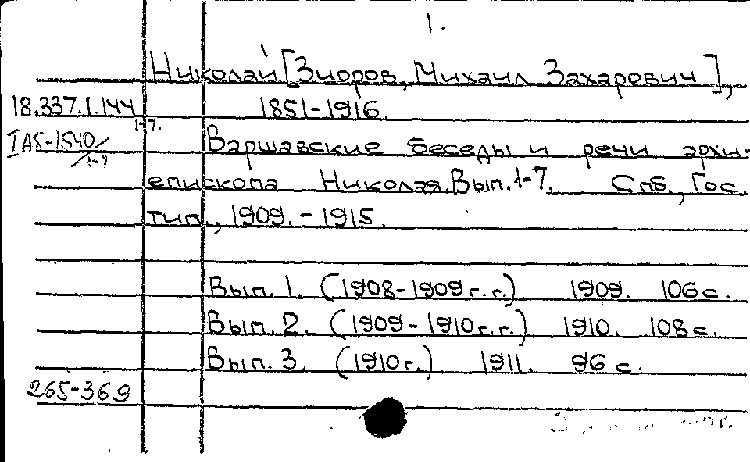 1.
Николай [Зиоров, Михаил Захаревич],
18.337.1.144 1851-1916.
1-7.
IA5-1540/1-7 Варшавские беседы и речи архи-
епископа Николая. Вып. 1-7. Спб., Гос.
тип., 1909. - 1915.
Вып. 1. (1908-1909 г.г.) 1909. 106 с.
Вып. 2. (1909-1910 г.г.) 1910. 108 с.
Вып. 3. (1910 г.) 1911. 96 с.
265-369